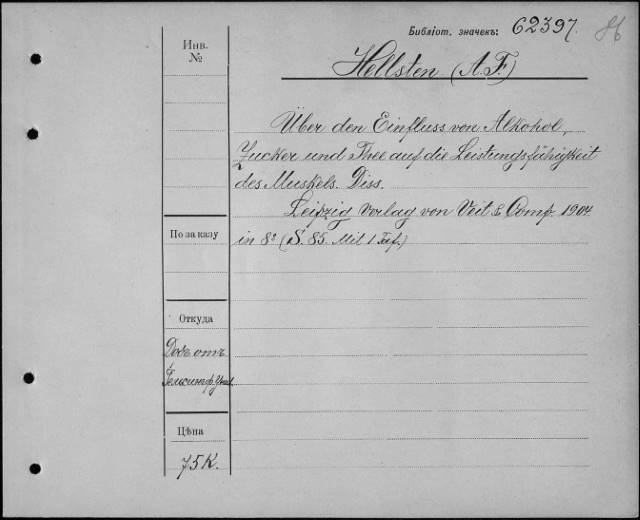 Библіот. значекъ: 62397.
Инв.
№
Hellsten (A. F.)
Über den Einfluss von Alkohol,
Zucker und Thee auf die Leistungsfähigkeit
des Muskels. Diss.
Leipzig Verlag von Veit & Comp. 1904.
По заказу
in 8º (S. 85. Mit 1 Taf.)
Откуда
отъ
Гельсингф. Унив.
Цѣна
75 К.